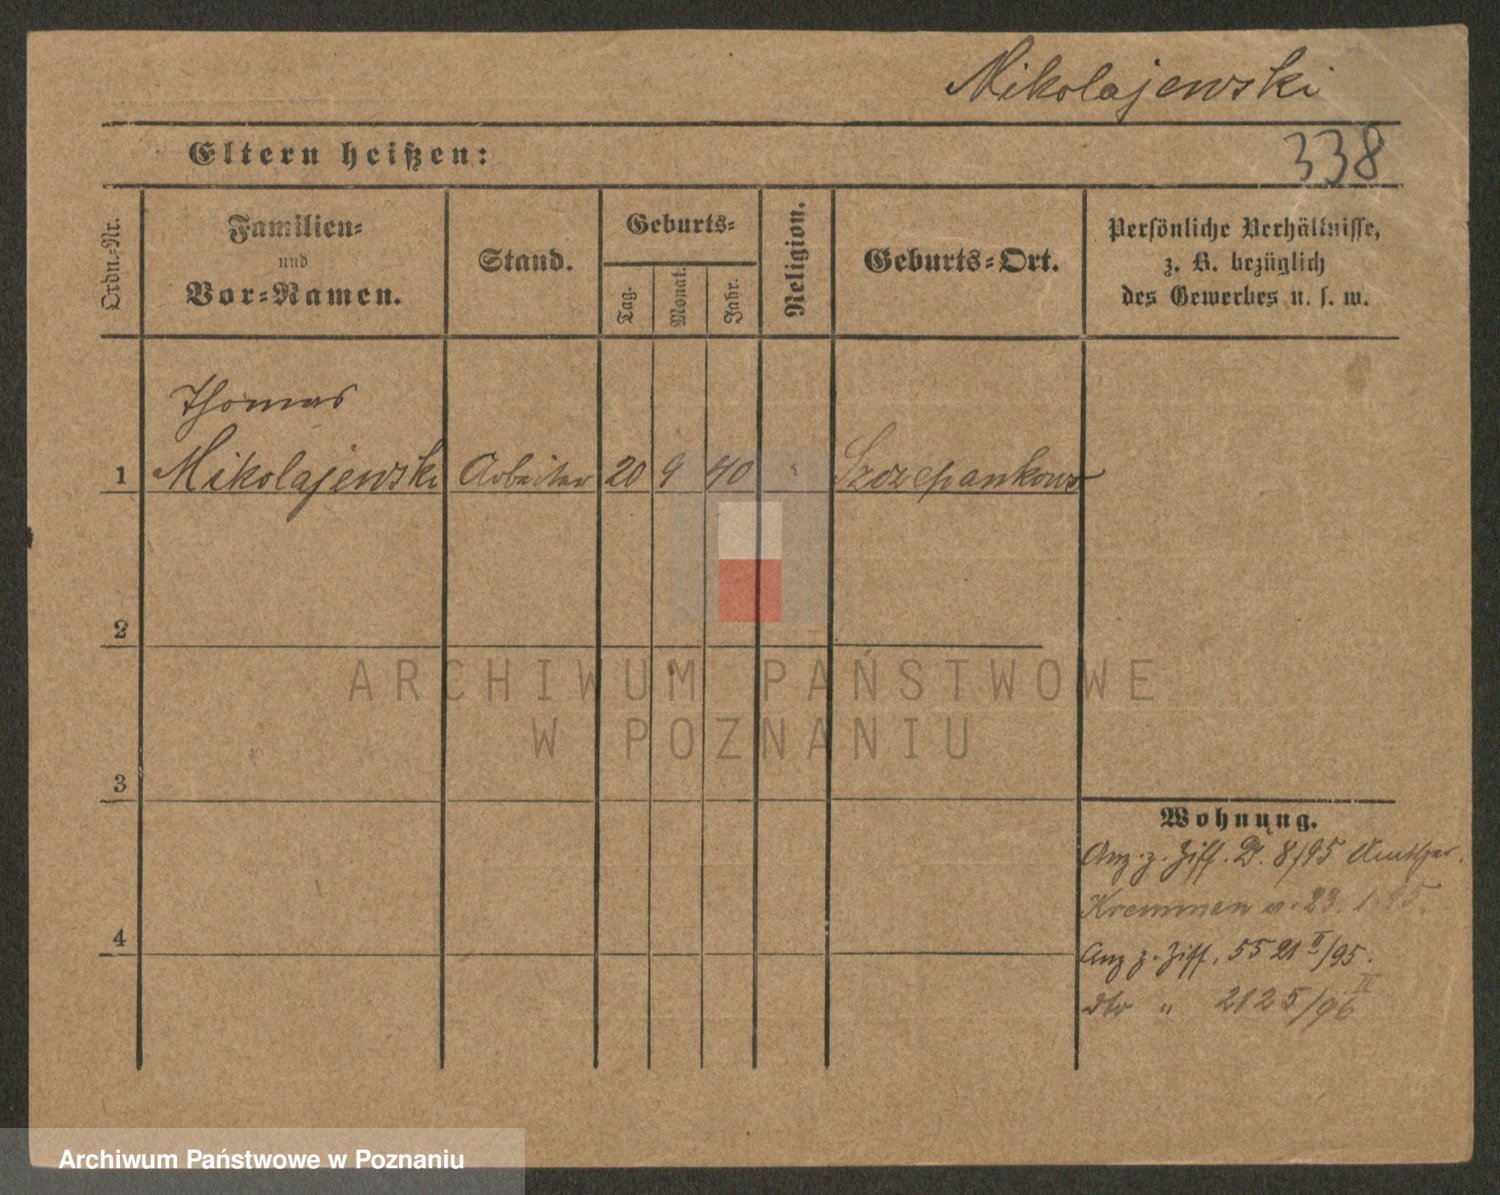 Mikolajewski
Eltern heißen:
338
Ordn.-Nr.
Familien-
und
Vor-Namen.
Stand.
Geburts-
Tag.
Monat.
Jahr.
Religion.
Geburts-Ort.
Persönliche Verhältnisse,
z. B. bezüglich
des Gewerbes u. s. w.
Thomas
1 Mikolajewski Arbeiter 20 9 40 Szczepankowo
2
ARCHIWUM PAŃSTWOWE
W POZNANIU
3
Wohnung.
Anz. z. Ziff. D. 8/95
Kremmen v. 23. 1. 95.
4
Anz z. Ziff. 5521 II/95.
dto " 2125/96 II
Archiwum Państwowe w Poznaniu